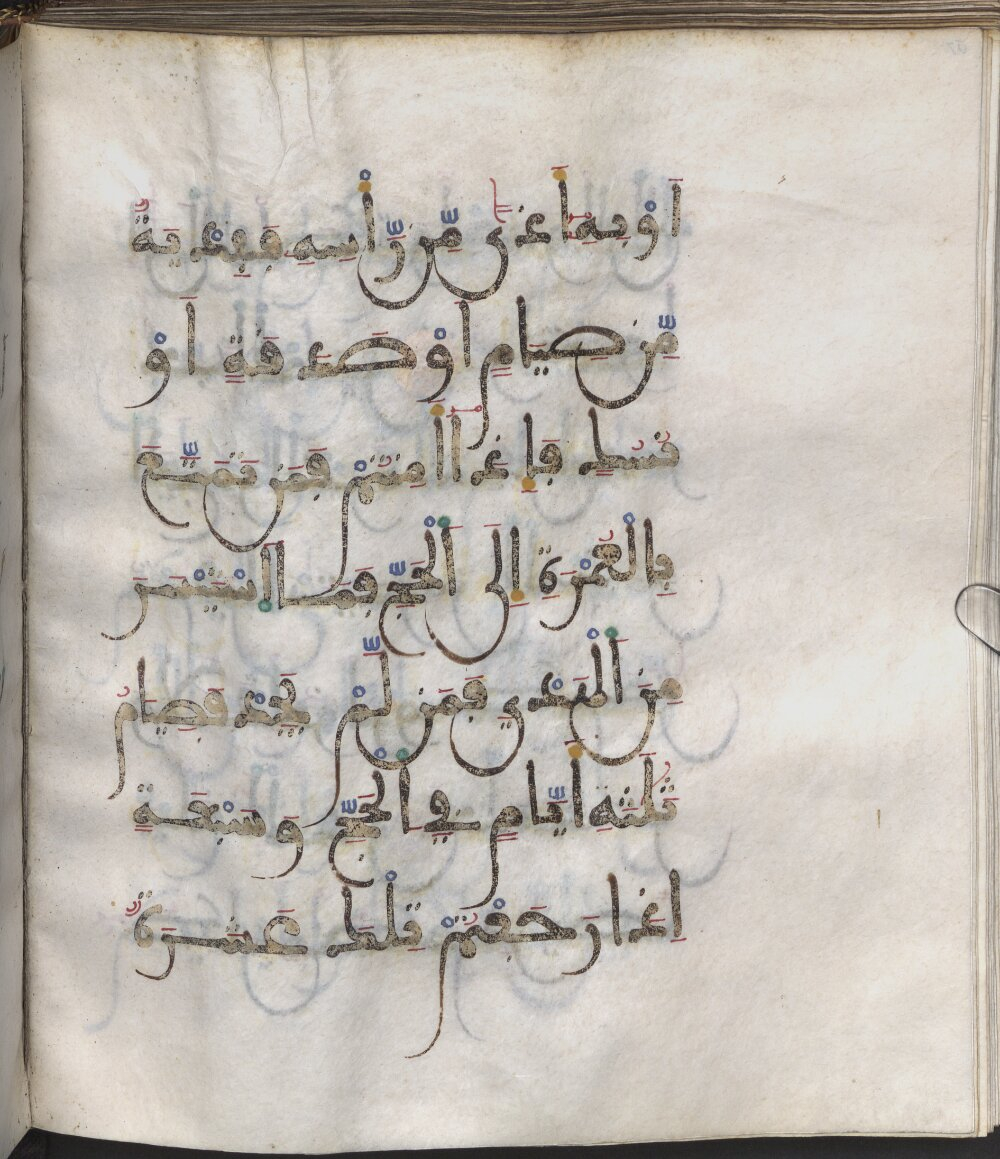 أَوْ بِهِۦٓ أَذًى مِّن رَّأْسِهِۦ فَفِدْيَةٌ
مِّن صِيَامٍ أَوْ صَدَقَةٍ أَوْ
نُسُكٍ فَإِذَآ أَمِنتُمْ فَمَن تَمَتَّعَ
بِالْعُمْرَةِ إِلَى الْحَجِّ فَمَا اسْتَيْسَرَ
مِنَ الْهَدْيِ فَمَن لَّمْ يَجِدْ فَصِيَامُ
ثَلَٰثَةِ أَيَّامٍ فِي الْحَجِّ وَسَبْعَةٍ
إِذَا رَجَعْتُمْ تِلْكَ عَشَرَةٌ